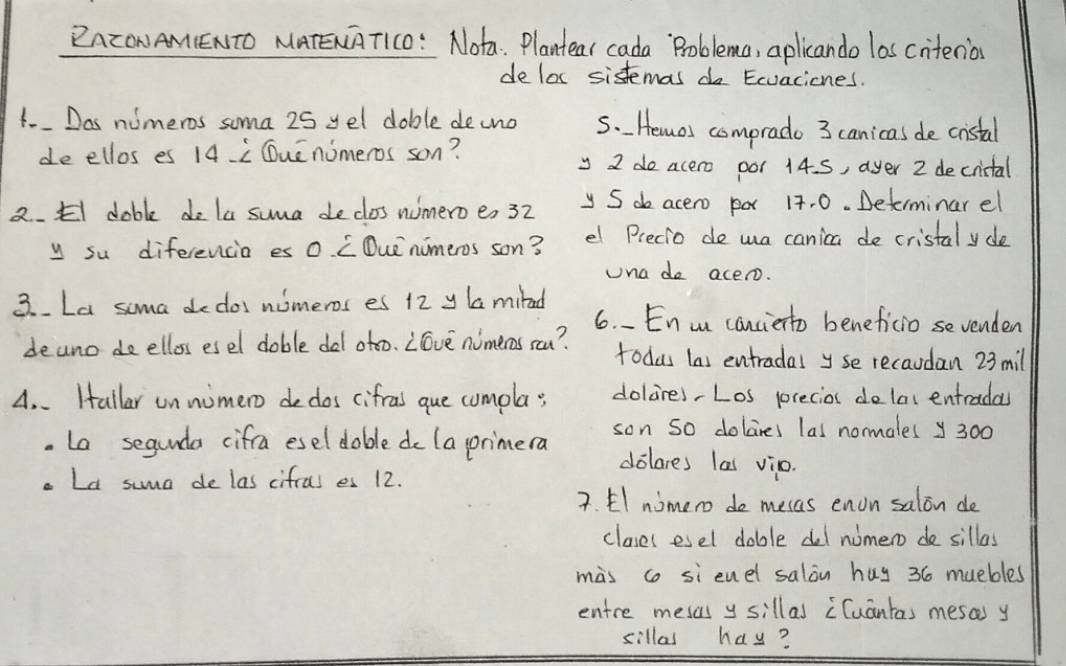 RAZONAMIENTO MATEMÁTICO: Nota. Plantear cada Problema, aplicando los criterios
de los sistemas de Ecuaciones.
1.- Dos números suma 25 y el doble de uno
de ellos es 14. ¿Qué números son?
2.- El doble de la suma de dos número es 32
y su diferencia es 0. ¿Qué números son?
3.- La suma de dos números es 12 y la mitad
de uno de ellos es el doble del otro. ¿Qué números son?
4.- Hallar un número de dos cifras que cumpla:
• La segunda cifra es el doble de la primera
• La suma de las cifras es 12.
5.- Hemos comprado 3 canicas de cristal
y 2 de acero por 14.5, ayer 2 de cristal
y 5 de acero por 17.0. Determinar el
el Precio de una canica de cristal y de
una de acero.
6.- En un concierto beneficio se venden
todas las entradas y se recaudan 23 mil
dolares. Los precios de las entradas
son 50 dolares las normales y 300
dólares las vip.
7. El número de mesas en un salón de
clases es el doble del número de sillas
más 6 si en el salón hay 36 muebles
entre mesas y sillas ¿Cuántas mesas y
sillas hay?